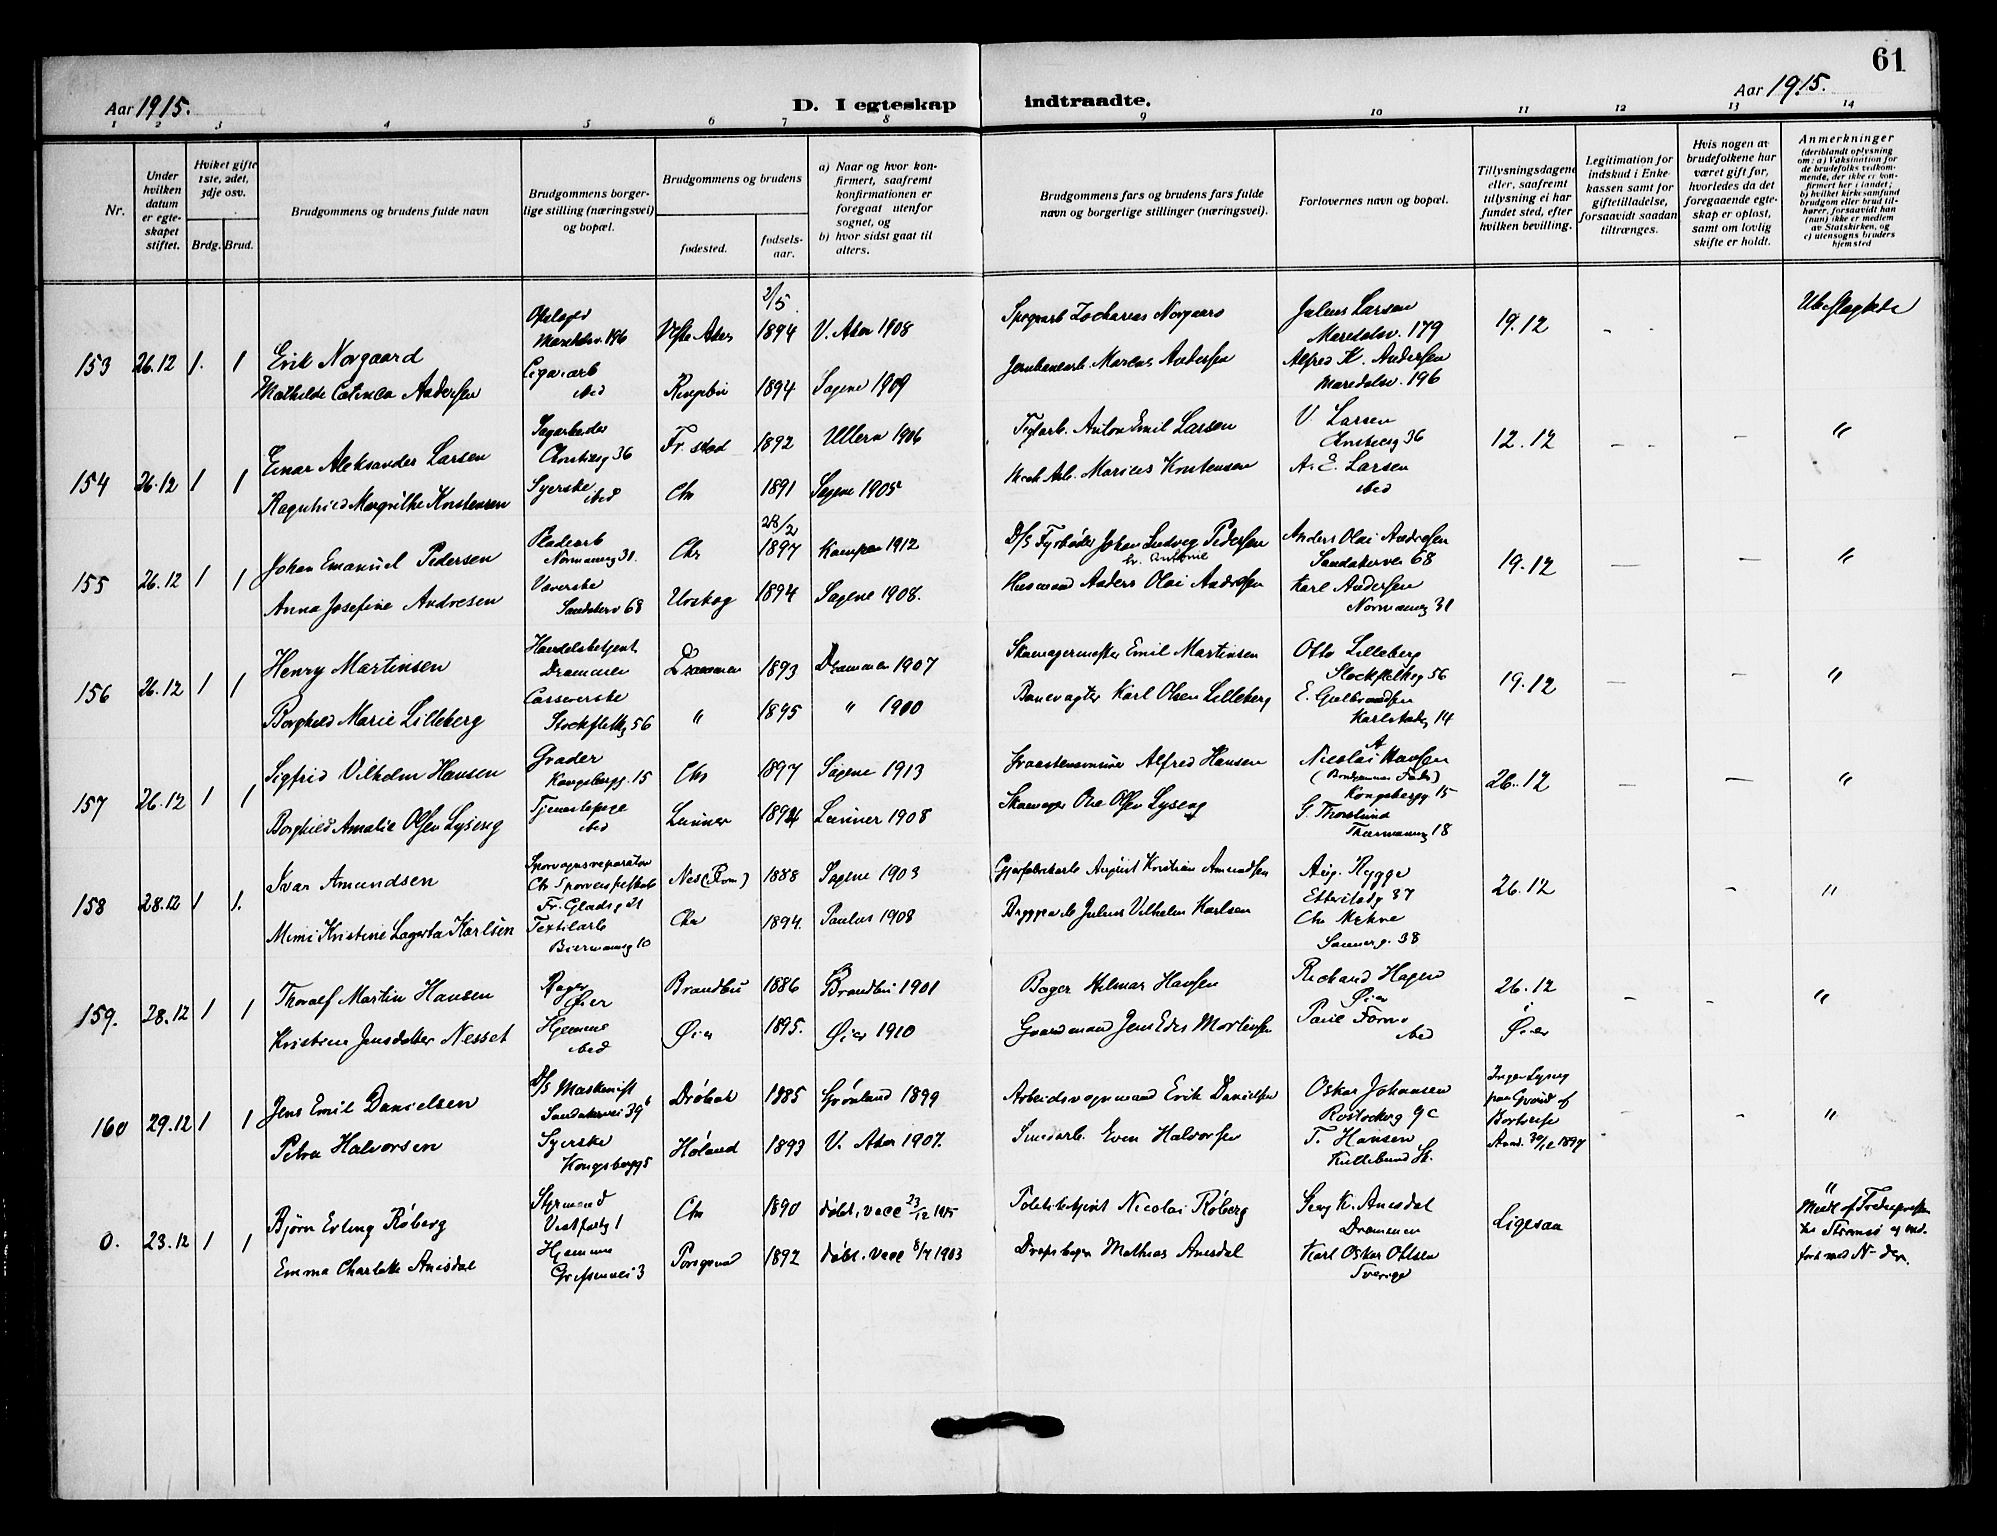 61
Aar 1915.
D. I egteskap indtraadte.
Aar 1915.
1 2 3 4 5 6 7 8 9 10 11 12 13 14
Nr.
Under hvilken datum er egteskapet stiftet.
Hviket gifte 1ste, 2det, 3dje osv.
Brdg. Brud.
Brudgommens og brudens fulde navn
Brudgommens borgerlige stilling (næringsvei) og bopæl.
Brudgommens og brudens
fødested.
fødselsaar.
a) Naar og hvor konfirmert, saafremt konfirmationen er foregaat utenfor sognet, og
b) hvor sidst gaat til alters.
Brudgommens fars og brudens fars fulde navn og borgerlige stillinger (næringsvei).
Forlovernes navn og bopæl.
Tillysningsdagene eller, saafremt tillysning ei har fundet sted, efter hvilken bevilling.
Legitimation for indskud i Enkekassen samt for giftetilladelse, forsaavidt saadan tiltrænges.
Hvis nogen av brudefolkene har været gift før, hvorledes da det foregaaende egteskap er opløst, samt om lovlig skifte er holdt.
Anmerkninger
(deriblandt oplysning om: a) Vaksination for de brudefolks vedkommende, der ikke er konfirmert her i landet; b) hvilket kirkesamfund brudgom eller brud tilhører, forsaavidt han (hun) ikke er medlem av Statskirken, og c) utensogns bruders hjemsted
153 26.12 1. 1
Erik Norgaard
Maridalsv. 196 Vestre Aker 2/5 1894 V. Aker 1908
Zacharias Norgaard
Julius Larsen
Maridalsv. 179
19.12
Ubeslegtede
Mathilde Catinca Andersen
Cigararb
ibid Ringebu 1894 Sagene 1909
Jernbanearb. Marcus Andersen
Alfred K. Andersen
Maridalsv. 196
154 26.12 1 1
Einar Aleksander Larsen
Sagarbeider
36 Fr. stad 1892 Ullern 1906
Anton Emil Larsen
V. Larsen
36
12.12
"
Ragnhild Margrithe Kristensen
Syerske
ibid Chr 1891 Sagene 1905
Mek Arb. Marius Kristensen
A. E. Larsen
ibid
155 26.12 1 1
Johan Emanuel Pedersen
Pladearb
Normannsg 31. Chr 28/2 1897 Kampen 1912
D/S Fyrbøder Johan Ludvig Pedersen
Anders Olai Andresen
Sandakerveien 68
19.12
"
Anna Josefine Andresen
Væverske
Sandakerv 68 Urskog 1894 Sagene 1908.
Husmand Anders Olai Andresen
Karl Andersen
Normannsg 31
156 26.12 1 1
Henry Martinsen
Handelsbetjent
Drammen Drammen 1893 Drammen 1907
Skomagermester Emil Martinsen
Otto Lilleberg
Stockfletsg 56
19.12
"
Borghild Marie Lilleberg
Stockfletsg 56 " 1895 " 1900
Banevagter Karl Olsen Lilleberg
E. Gulbrandsen
Karlstadg 14
157 26.12 1 1
Sigfrid Vilhelm Hansen
Grader
Kongsbergg. 15 Chr 1897 Sagene 1913
Alfred Hansen
Nicolai A Hansen
(Brudgommens Fader)
Kongsbergg 15
26.12
"
Borghild Amalie Olsen Lyseng
Tjenestepige
ibid Lunner 1894 Lunner 1908
Skomager Ole Olsen Lyseng
G. Thorslund
18
158 28.12 1 1.
Ivar Amundsen
Sporvognsreparatør
Chr Sporveisselskab
Fr. Gladsg 21 Nes (Rom) 1888 Sagene 1903
August Kristian Amundsen
Aug. Rygge
37
26.12
"
Mimi Kristine Lagerta Karlsen
Textilarb
Biermannsg 10 Chr 1894. Paulus 1908
Bryggearb Julius Vilhelm Karlsen
Sannerg. 38
159. 28.12 1 1
Thoralf Martin Hansen
Bager
Øier Brandbu 1886 Brandbu 1901
Bager Hilmar Hansen
Richard Hagen
Øier
26.12
i
Øier
"
Kristine Jensdatter Nesset
Hjemme
ibid Øier 1895. Øier 1910
Gaardmand Jens Edv Mortinsen
Paul
ibid
160 29.12 1 1
Jens Emil Danielsen
D/S Maskinist
Sandakervei 39b Drøbak 1885 Grønland 1899
Arbeidsvognmand Erik Danielsen
Oskar Johansen
Rostockerg 9c
Ingen Lysning
paa Grund af
Bortreise
"
Petra Halvorsen
Syerske
Kongsbergg 5 Høland 1893 V. Aker 1907.
Smedarb. Even Halvorsen
T. Hansen
Kullebund St.
Anord. 30/12 1897
0. 23.12 1 1
Bjørn Erling Røberg
Styrmand
Vestfoldg 1 Chr 1890 døbt, vacc 23/12 1915
Politibetjent Nicolai Røberg
K. Amsdal
Drammen
Ligesaa
"
Emma Charlotte Amsdal
Hjemme
Grefsenvei 3 Porsgrund 1892 døbt. Vacc 8/7 1903
Mathias Amsdal
Karl Oskar Ohlsen
Sverige